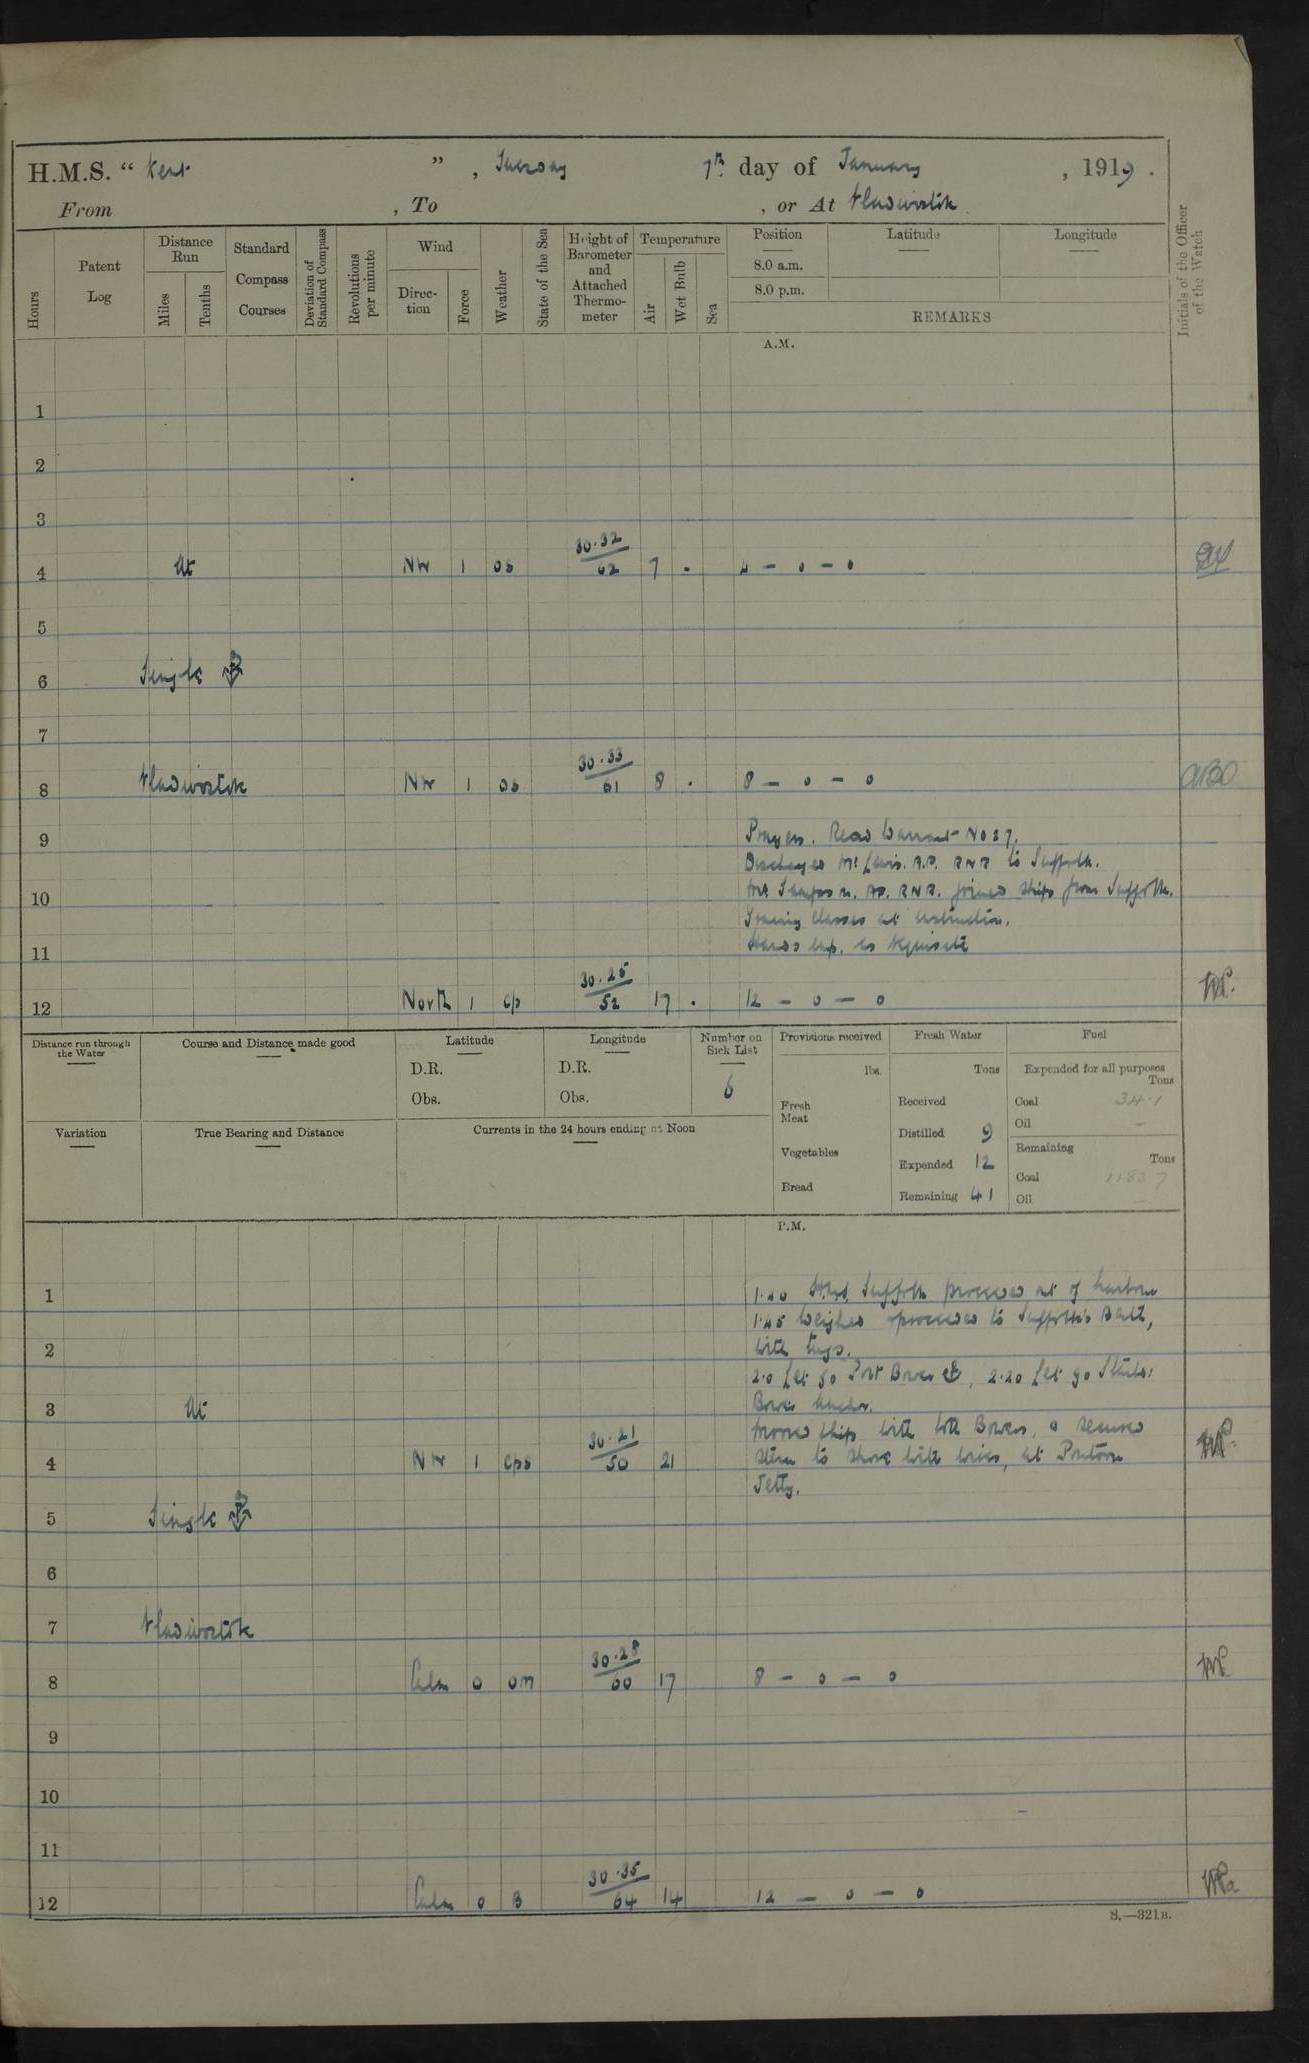 H.M.S. “ Kent ”, Tuesday 7th day of January, 1919.
From , To , or At Vladivostok
Hours
Patent Log
Distance Run
Miles
Tenths
Standard Compass Courses
Deviation of Standard Compass
Revolutions per minute
Wind
Direction
Force
Weather
State of the Sea
Height of Barometer and Attached Thermometer
Temperature
Air
Wet Bulb
Sea
Position
Latitude
Longitude
8.0 a.m.
8.0 p.m.
REMARKS
Initials of the Officer of the Watch
A.M.
1
2
3
4 At NW 1 os 30.32 62 7 - 4 – 0 – 0
5
6 Single
7
8 Vladivostok NW 1 os 30.33 61 8 - 8 – 0 – 0 ABO
9 Prayers. Read Warrant No 27.
Discharged Mr Lewis. A.P. RNR to Suffolk.
10 Mr Sampson. AP. RNR. joined ship from Suffolk.
Training Classes at instruction.
11 Hands emp. as requisite
12 North 1 cp 30.25 52 17 - 12 – 0 – 0
Distance run through the Water
Course and Distance made good
Latitude
D.R.
Obs.
Longitude
D.R.
Obs.
Number on Sick List
6
Provisions received
lbs.
Fresh Meat
Vegetables
Bread
Fresh Water
Tons
Received
Distilled 9
Expended 12
Remaining 41
Fuel
Expended for all purposes
Tons
Coal 34.1
Oil –
Remaining
Tons
Coal
Oil –
Variation
True Bearing and Distance
Currents in the 24 hours ending at Noon
P.M.
1 1.40 H.M.S. Suffolk proceeded out of harbour
1.45 Weighed & proceeded to Suffolk's Berth,
2 with tugs.
2.0 Let go Port Bower, 2.20 Let go Starbd:
3 At Bower Anchor.
Moored ship with both Bowers, & secured
4 NW 1 cps 30.21 50 21 stern to shore with wires, at Pontoon
Jetty.
5 Single
6
7 Vladivostok
8 Calm 0 om 30.28 60 17 8 – 0 – 0
9
10
11
12 Calm 0 B 30.35 64 14 12 – 0 – 0
S.—321B.